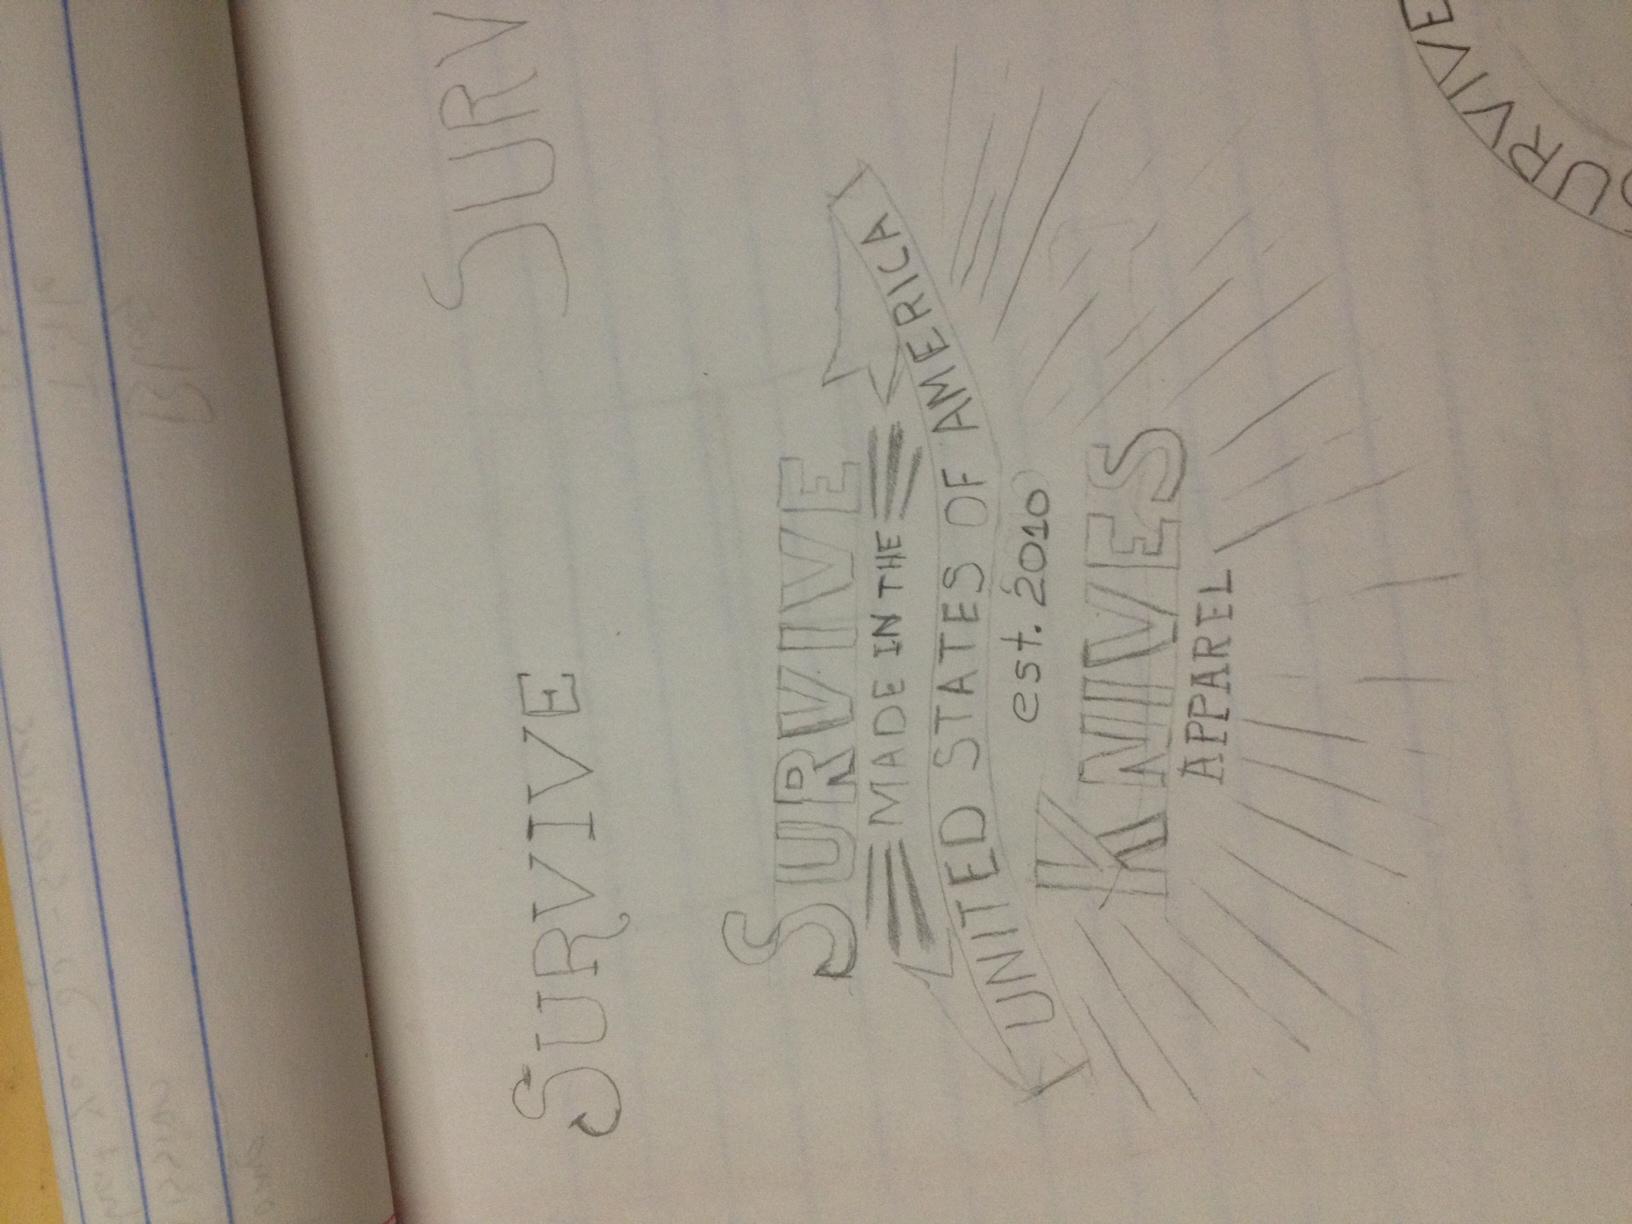 SURV
SURVIVE
SURVIVE
MADE IN THE
UNITED STATES OF AMERICA
est. 2010
KNIVES
APPAREL
SURVIVE